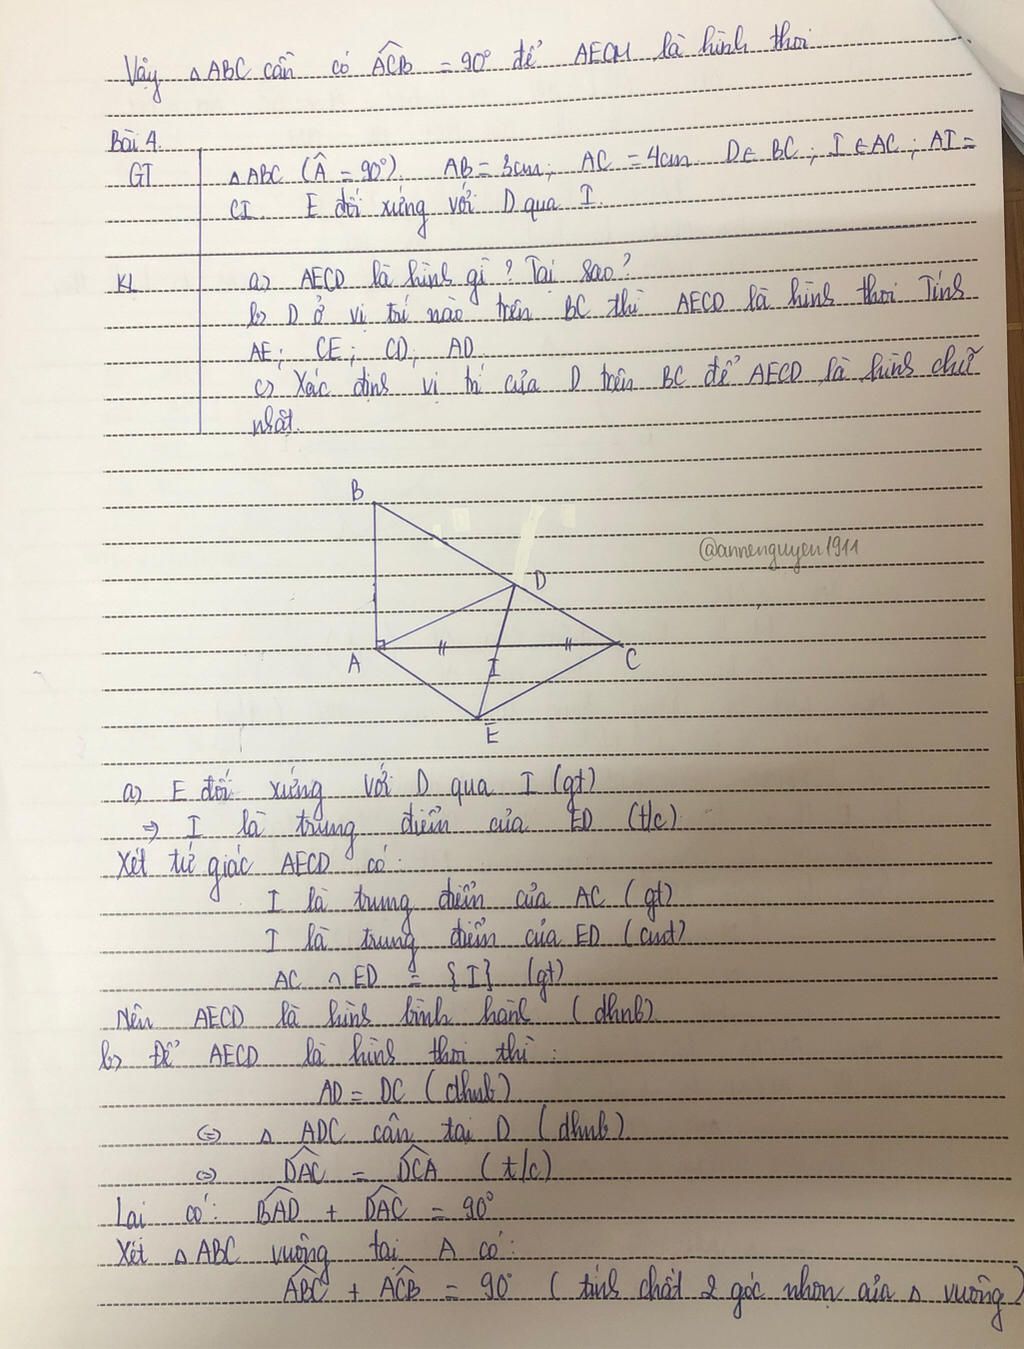 Vậy △ABC cần có ACB = 90° để AECM là hình thoi
Bài 4.
GT △ABC (Â = 90°). AB = 3cm; AC = 4cm D∈ BC; I ∈ AC; AI =
CI. E đối xứng với D qua I.
KL a) AECD là hình gì? Tại sao?
b) D ở vị trí nào trên BC thì AECD là hình thoi Tính
AE; CE; CD, AD
c) Xác định vị trí của D trên BC để AECD là hình chữ
nhật.
B
@annenguyen1911
D
A I C
E
a) E đối xứng với D qua I (gt)
⇒ I là trung điểm của ED (t/c)
Xét tứ giác AECD có:
I là trung điểm của AC (gt)
I là trung điểm của ED (cmt)
AC ∩ ED = {I} (gt)
Nên AECD là hình bình hành (dhnb)
b) Để AECD là hình thoi thì:
AD = DC (dhnb)
⇔ △ ADC cân tại D (dhnb)
⇔ DAC = DCA (t/c)
Lại có: BAD + DAC = 90°
Xét △ABC vuông tại A có:
ABC + ACB = 90° (tính chất 2 góc nhọn của △ vuông)